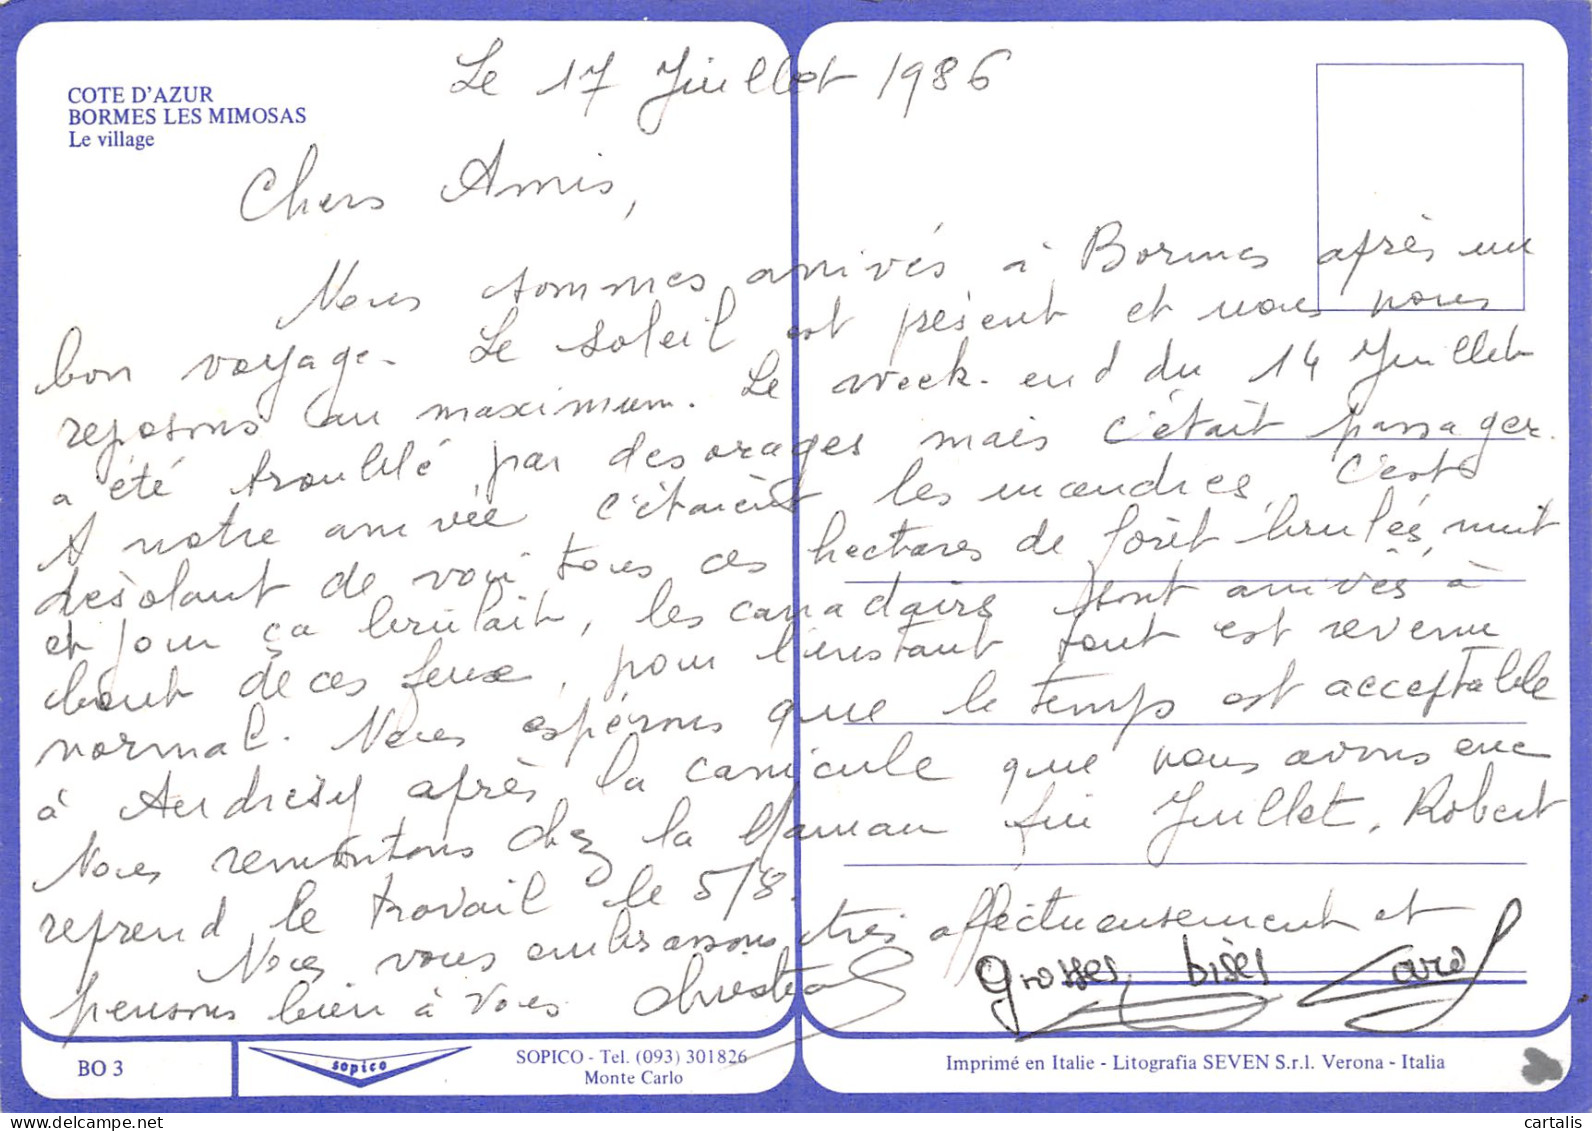 COTE D'AZUR
BORMES LES MIMOSAS
Le village
Le 17 Juillet 1986
Chers Amis,
Nous sommes arrivés à Bormes après un
bon voyage. Le soleil est présent et nous nous
reposons au maximum. Le week-end du 14 Juillet
a été troublé par des orages mais c'était passager.
A notre arrivée c'étaient les incendies, c'est
désolant de voir tous ces hectares de forêt brulés, nuit
et jour ça brûlait, les canadairs sont arrivés à
bout de ces feux, pour l'instant tout est revenu
normal. Nous espérons que le temps est acceptable
à Andrésy après la canicule que nous avons eue
Nous remontons chez la Maman fin Juillet, Robert
reprend le travail le 5/8.
Nous vous embrassons très affectueusement et
pensons bien à vous
Grosses bises
BO 3
sopico
SOPICO - Tel. (093) 301826
Monte Carlo
Imprimé en Italie - Litografia SEVEN S.r.l. Verona - Italia
cartalis